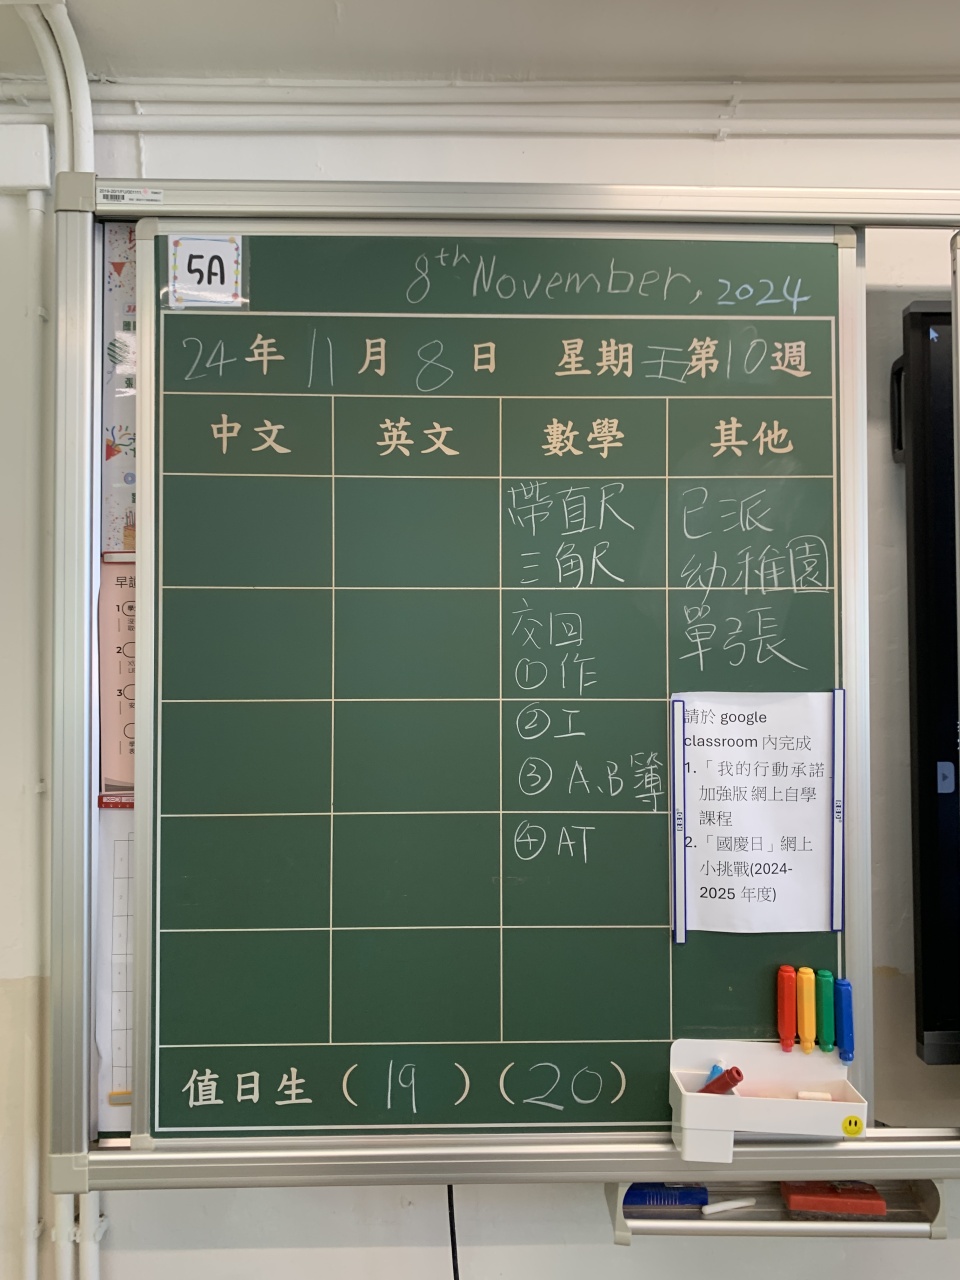 5A
8th November, 2024
24年 11月 8日 星期五第10週
中文 英文 數學 其他
帶直尺
三角尺
交回
①作
②工
③A、B簿
④AT
已派
幼稚園
單張
請於 google
classroom 內完成
1.「我的行動承諾
加強版網上自學
課程
2.「國慶日」網上
小挑戰(2024-
2025 年度)
值日生(19)(20)
早
1
2
3